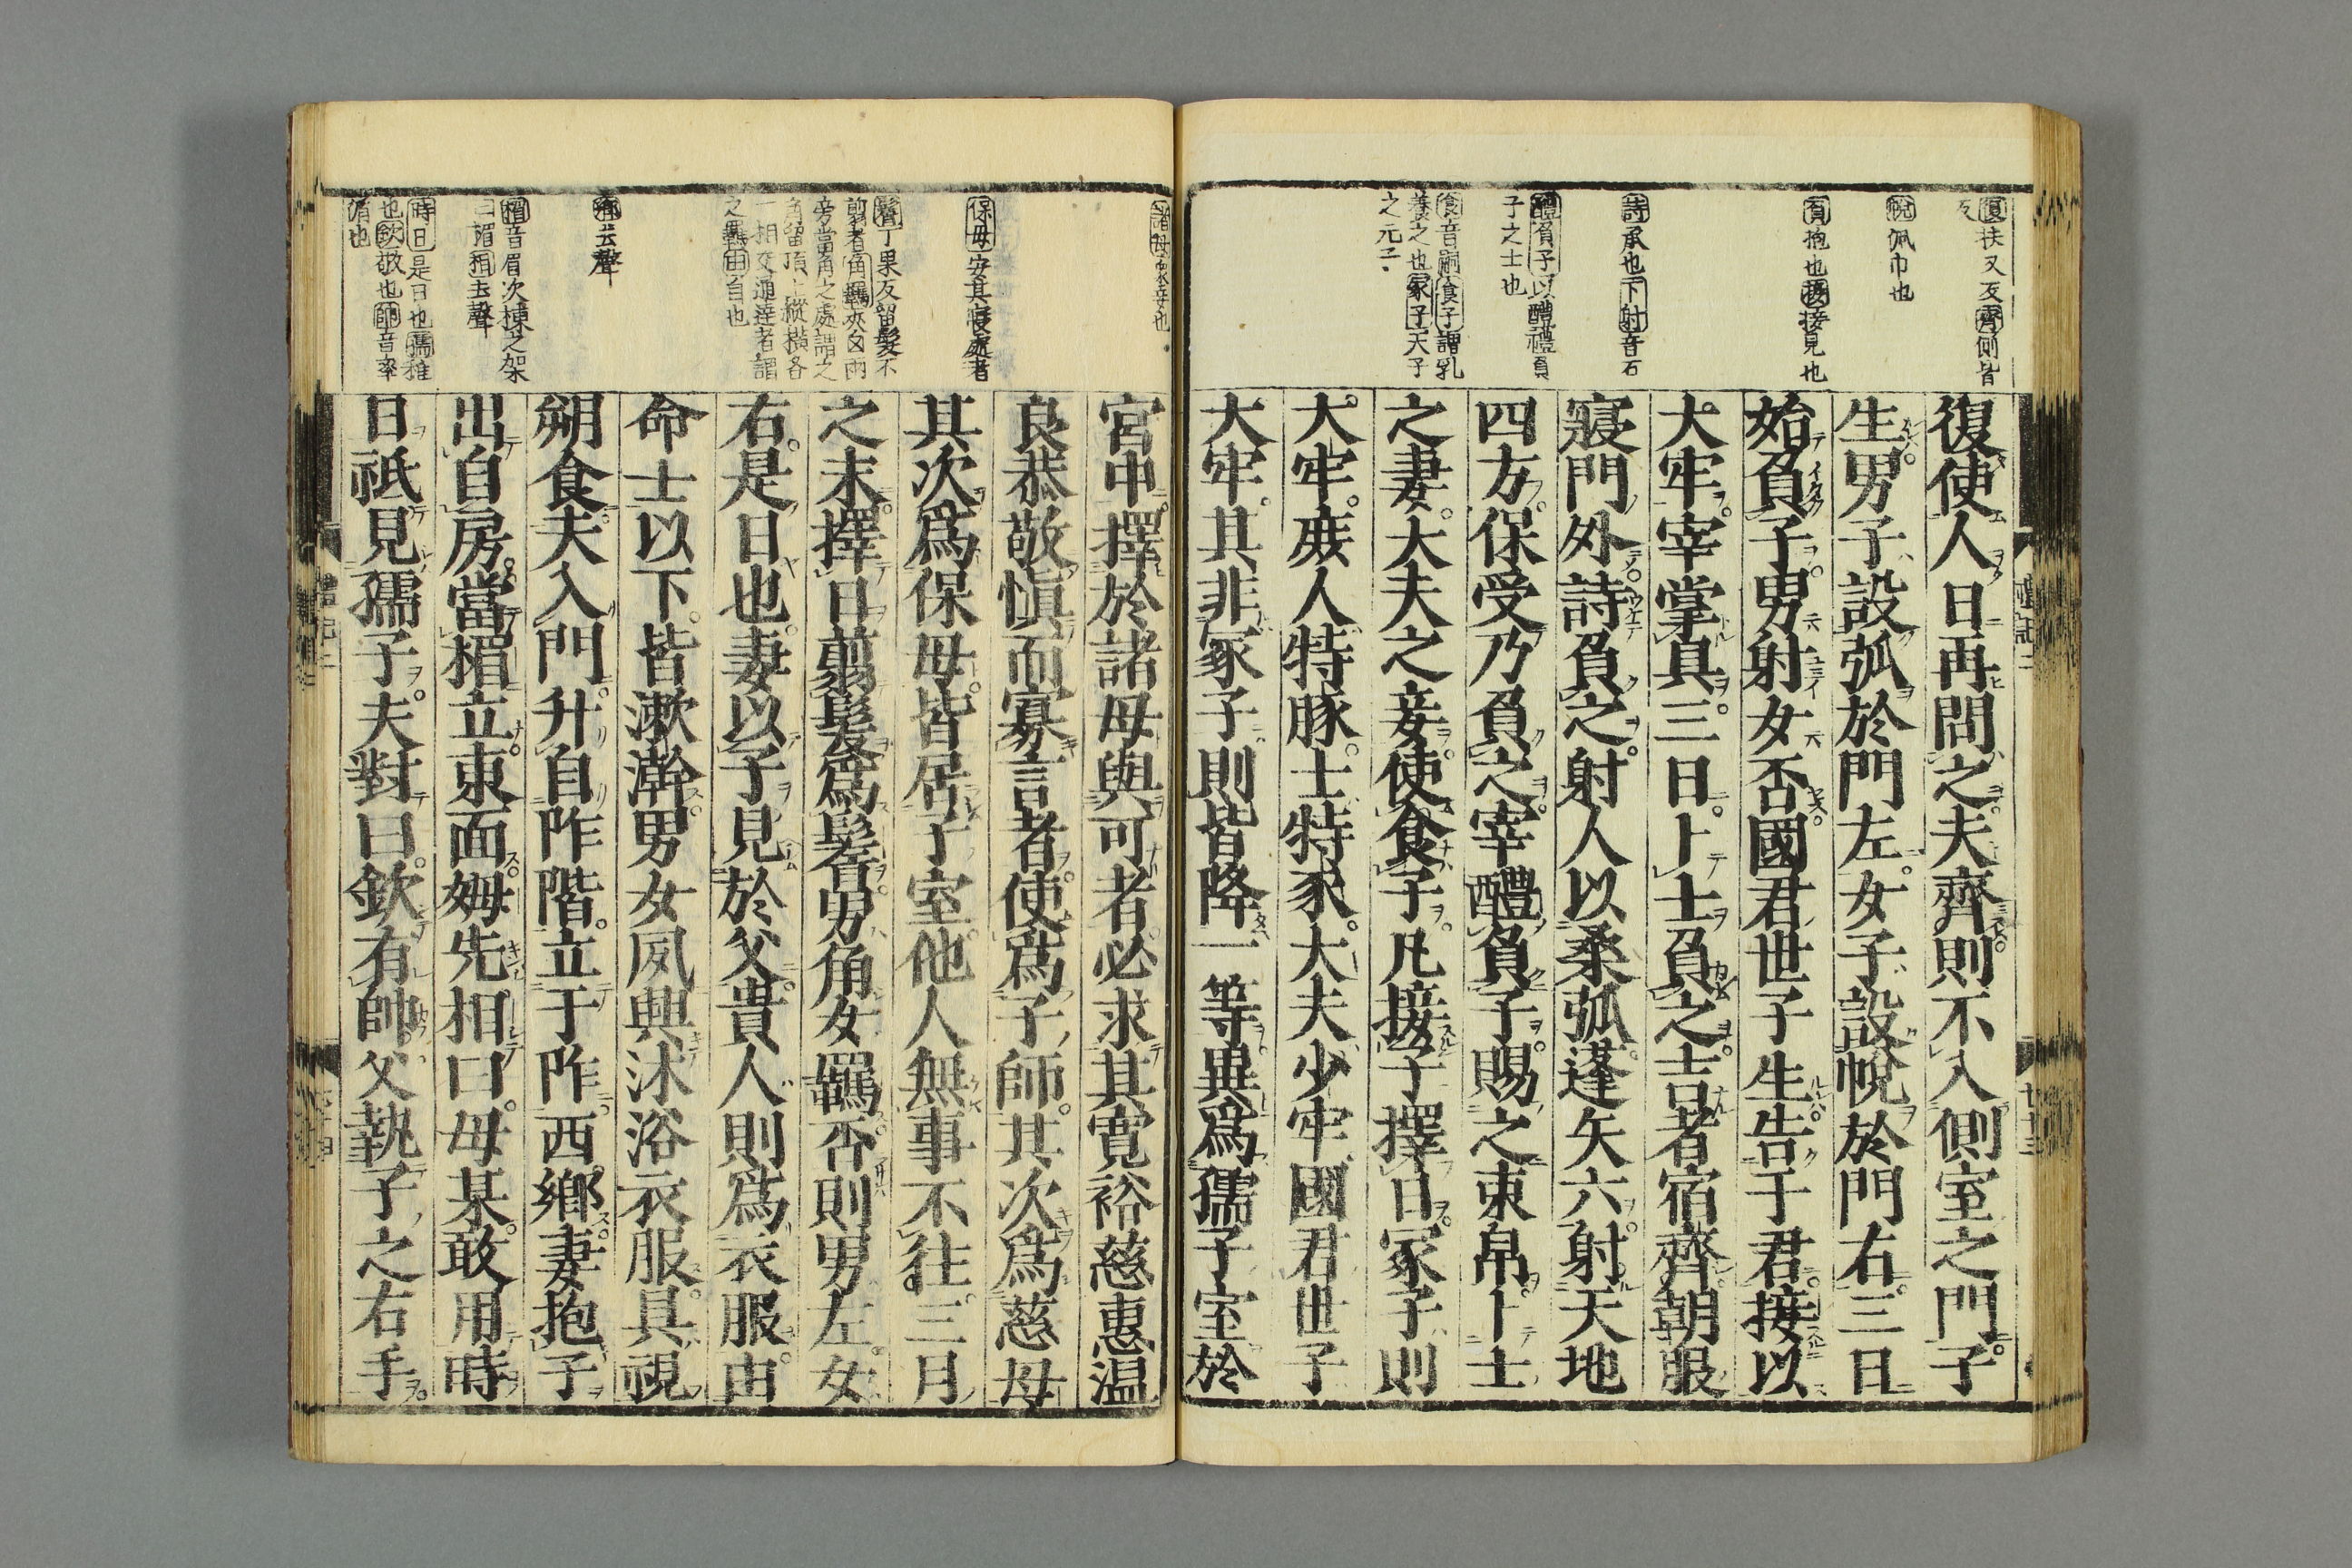 復扶又反齊側皆
反
帨佩巾也
負抱也接接見也
詩承也下射音石
醴負子以醴禮負
子之士也
食音嗣食子謂乳
養之也冢子天子
之元子
復使人日再問之夫齊則不入側室之門子
生男子設弧於門左女子設帨於門右三日
始負子男射女否國君世子生告于君接以
大牢宰掌具三日卜士負之吉者宿齊朝服
寢門外詩負之射人以桑弧蓬矢六射天地
四方保受乃負之宰醴負子賜之束帛卜士
之妻大夫之妾使食子凡接子擇日冢子則
大牢庶人特豚士特豕大夫少牢國君世子
大牢其非冢子則皆降一等異爲孺子室於
禮記二
諸母衆妾也
保母安其寢處者
鬌丁果反留髮不
翦者角羈夾囟兩
旁當角之處謂之
角留頂上縱橫各
一相交通達者謂
之羈由自也
鄉去聲
楣音眉次棟之架
曰楣相去聲
時日是日也孺稚
也欽敬也帥音率
循也
宮中擇於諸母與可者必求其寬裕慈惠温
良恭敬愼而寡言者使爲子師其次爲慈母
其次爲保母皆居子室他人無事不往三月
之末擇日翦髮爲鬌男角女羈否則男左女
右是日也妻以子見於父貴人則爲衣服由
命士以下皆漱澣男女夙興沐浴衣服具視
朔食夫入門升自阼階立于阼西鄉妻抱子
出自房當楣立東面姆先相曰母某敢用時
日祗見孺子夫對曰欽有帥父執子之右手